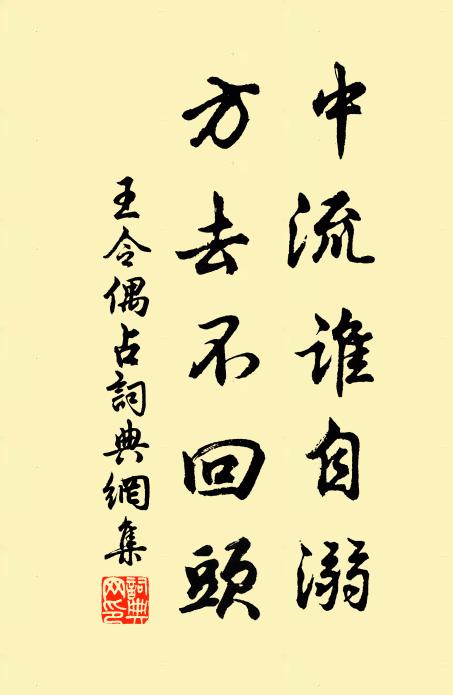 中流誰自溺
方去不回頭
王令偶占詞典網集
詞典網印